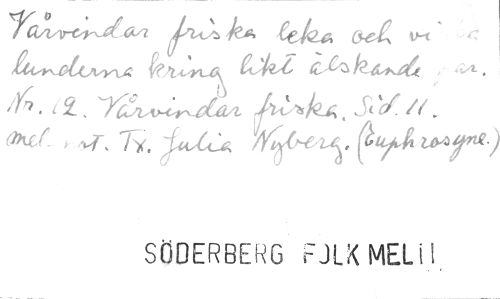 Vårvindar friska leka och
lunderna kring likt älskande par.
Nr. 12. Vårvindar friska. Sid. 11.
mel. not. Tx. Julia Nyberg. (Euphrosyne.)
SÖDERBERG FOLKMEL II